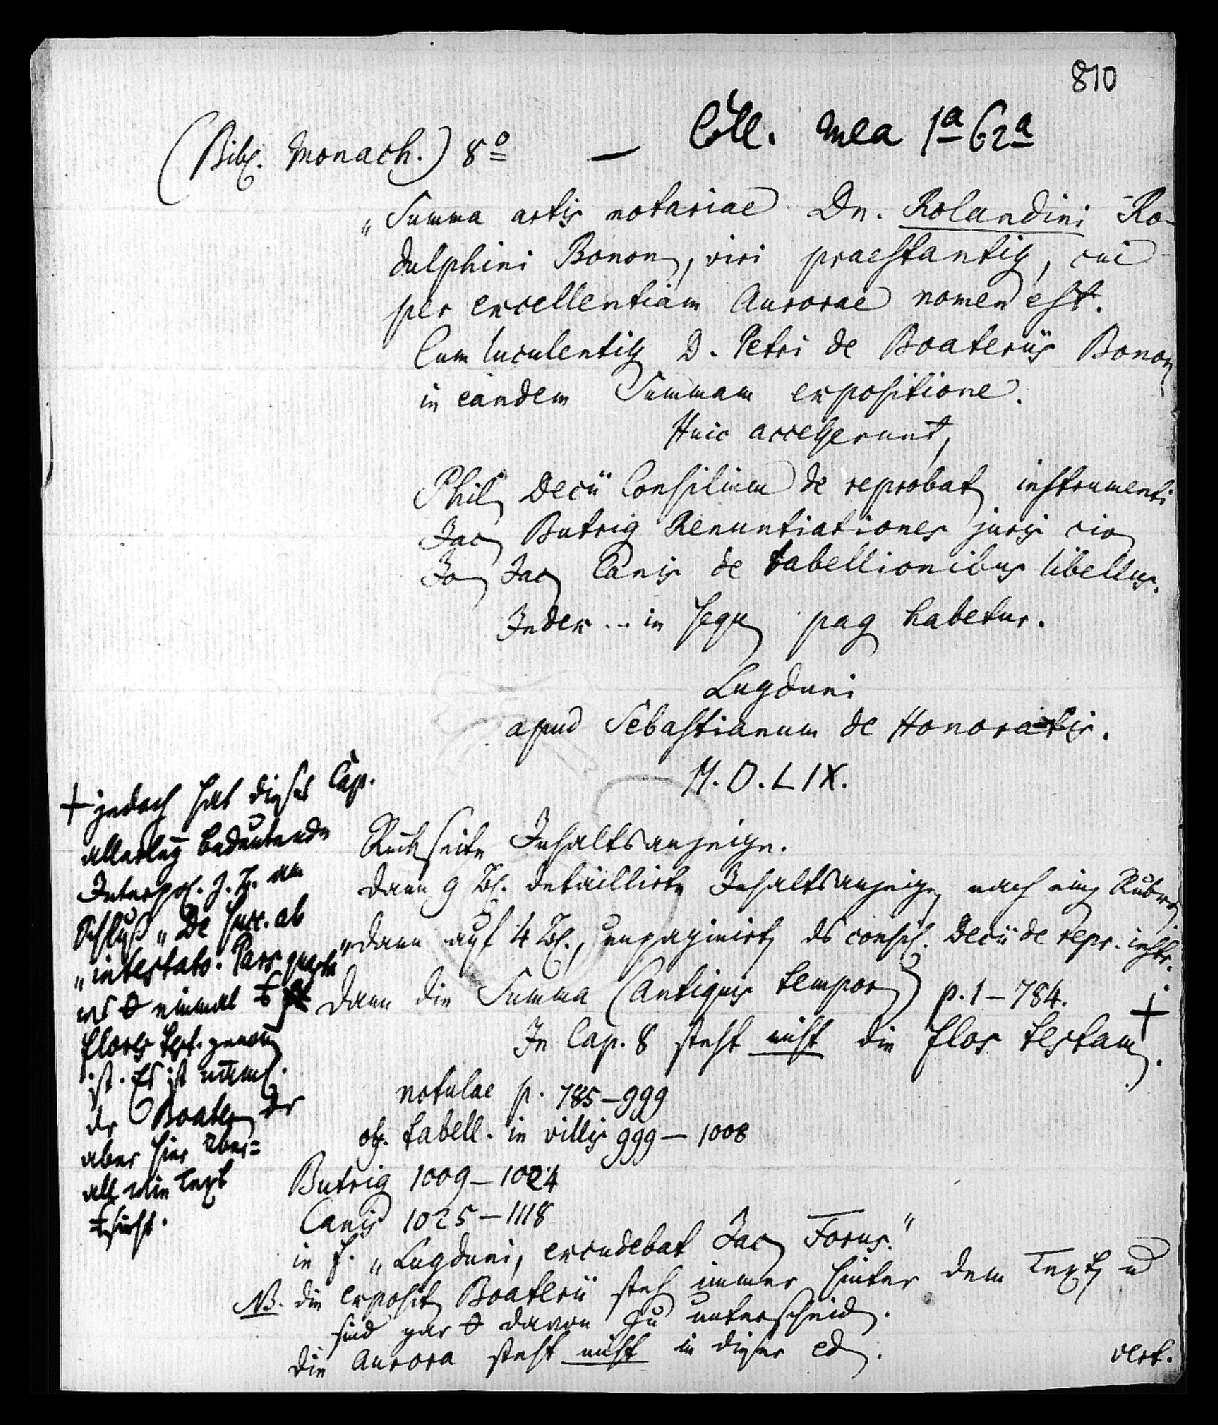 810
(Bibl. Monach.) 8º — Coll. mea 1ª 62ª
„Summa artis notariae Dn. Rolandini Ro-
dulphini Bonon, viri praestantis, cui
per excellentiam Aurorae nomen est.
Cum luculentis D. Petri de Boateriis Bonon
in eandem Summam expositione.
Huic accesserunt,
Phil Decii Consilium de reprobat instrumenti
Jac Butrig Renuntiationes juris civ
Jo Jac Canis de tabellionibus libellus.
Index .. in sequ pag habetur.
Lugduni
apud Sebastianum de Honoratis.
M.D.LIX.
Rückseite Inhaltsanzeige.
dann 9 Bl. detaillirte Inhaltsanzeige nach einz Rubr
dann auf 4 Bl., unpaginirt ds consil. Decii de repr. instr.
dann die Summa (Antiquis tempor) p. 1–784.
In Cap. 8 steht nicht die flos testam. +
notulae p. 785–999
of. tabell. in villis 999–1008
Butrig 1009–1024
Canis 1025–1118
in f. „Lugduni, excudebat Jac Forus."
NB. die exposit Boaterii steh immer hinter dem Text u
sind gar davon zu unterscheid.
die Aurora steht nicht in dieser ed.
vert.
+ jedoch hat dieses Cap.
allerley bedeutende
Interpol. z. B. am
Schluß „De succ. ab
„intestato. Pars quarta"
einmal
flores test. genan
ist. Es ist näml.
der Boater der
aber hier über=
all wie Text